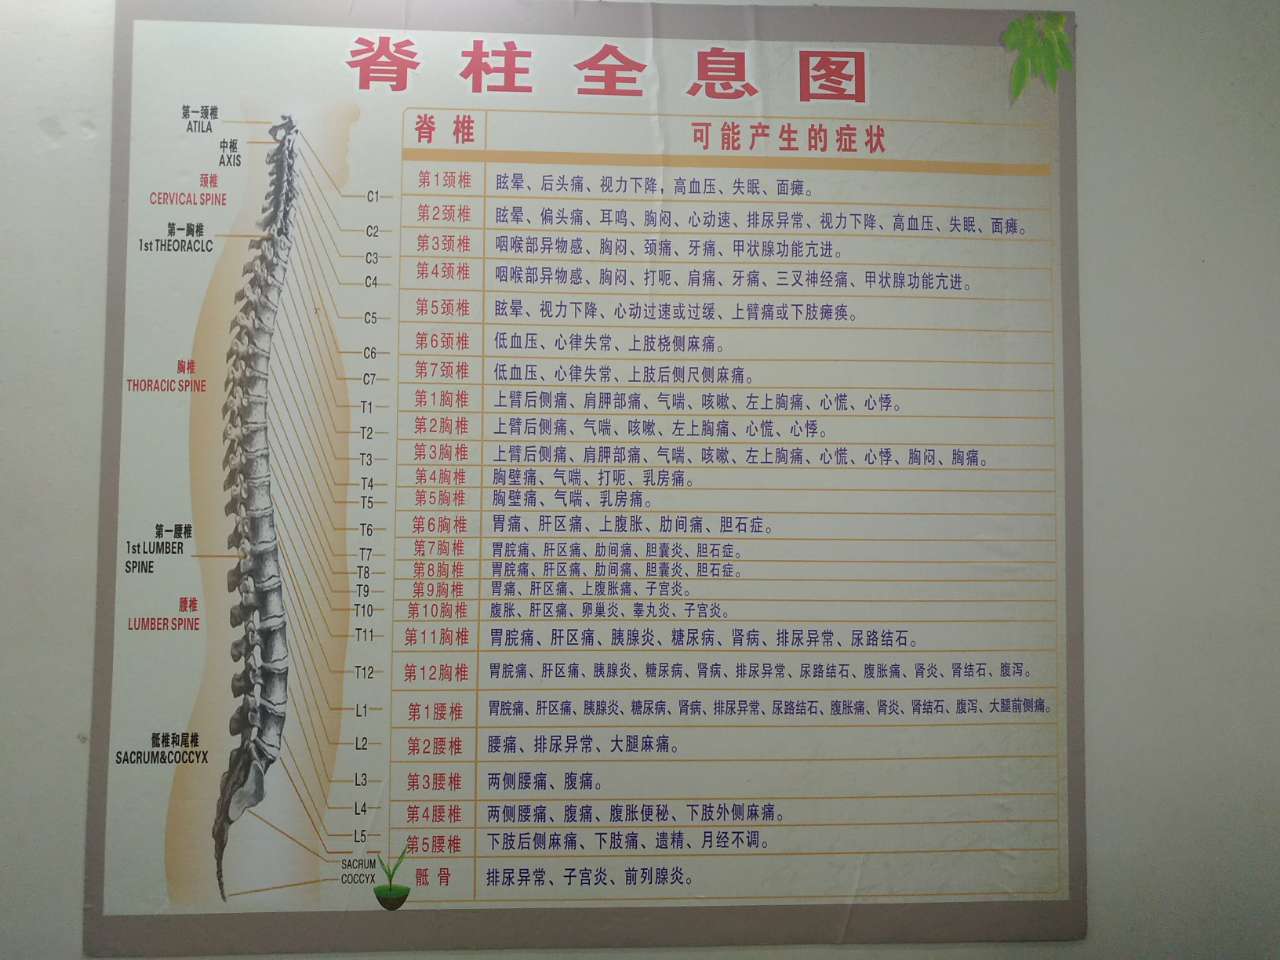 脊柱全息图
第一颈椎
ATILA
中枢
AXIS
颈椎
CERVICAL SPINE
第一胸椎
1st THEORACLC
胸椎
THORACIC SPINE
第一腰椎
1st LUMBER
SPINE
腰椎
LUMBER SPINE
骶椎和尾椎
SACRUM&COCCYX
C1
C2
C3
C4
C5
C6
C7
T1
T2
T3
T4
T5
T6
T7
T8
T9
T10
T11
T12
L1
L2
L3
L4
L5
SACRUM
COCCYX
脊椎 可能产生的症状
第1颈椎 眩晕、后头痛、视力下降，高血压、失眠、面瘫。
第2颈椎 眩晕、偏头痛、耳鸣、胸闷、心动速、排尿异常、视力下降、高血压、失眠、面瘫。
第3颈椎 咽喉部异物感、胸闷、颈痛、牙痛、甲状腺功能亢进。
第4颈椎 咽喉部异物感、胸闷、打呃、肩痛、牙痛、三叉神经痛、甲状腺功能亢进。
第5颈椎 眩晕、视力下降、心动过速或过缓、上臂痛或下肢瘫痪。
第6颈椎 低血压、心律失常、上肢桡侧麻痛。
第7颈椎 低血压、心律失常、上肢后侧尺侧麻痛。
第1胸椎 上臂后侧痛、肩胛部痛、气喘、咳嗽、左上胸痛、心慌、心悸。
第2胸椎 上臂后侧痛、气喘、咳嗽、左上胸痛、心慌、心悸。
第3胸椎 上臂后侧痛、肩胛部痛、气喘、咳嗽、左上胸痛、心慌、心悸、胸闷、胸痛。
第4胸椎 胸壁痛、气喘、打呃、乳房痛。
第5胸椎 胸壁痛、气喘、乳房痛。
第6胸椎 胃痛、肝区痛、上腹胀、肋间痛、胆石症。
第7胸椎 胃脘痛、肝区痛、肋间痛、胆囊炎、胆石症。
第8胸椎 胃脘痛、肝区痛、肋间痛、胆囊炎、胆石症。
第9胸椎 胃痛、肝区痛、上腹胀痛、子宫炎。
第10胸椎 腹胀、肝区痛、卵巢炎、睾丸炎、子宫炎。
第11胸椎 胃脘痛、肝区痛、胰腺炎、糖尿病、肾病、排尿异常、尿路结石。
第12胸椎 胃脘痛、肝区痛、胰腺炎、糖尿病、肾病、排尿异常、尿路结石、腹胀痛、肾炎、肾结石、腹泻。
第1腰椎 胃脘痛、肝区痛、胰腺炎、糖尿病、肾病、排尿异常、尿路结石、腹胀痛、肾炎、肾结石、腹泻、大腿前侧痛。
第2腰椎 腰痛、排尿异常、大腿麻痛。
第3腰椎 两侧腰痛、腹痛。
第4腰椎 两侧腰痛、腹痛、腹胀便秘、下肢外侧麻痛。
第5腰椎 下肢后侧麻痛、下肢痛、遗精、月经不调。
骶骨 排尿异常、子宫炎、前列腺炎。